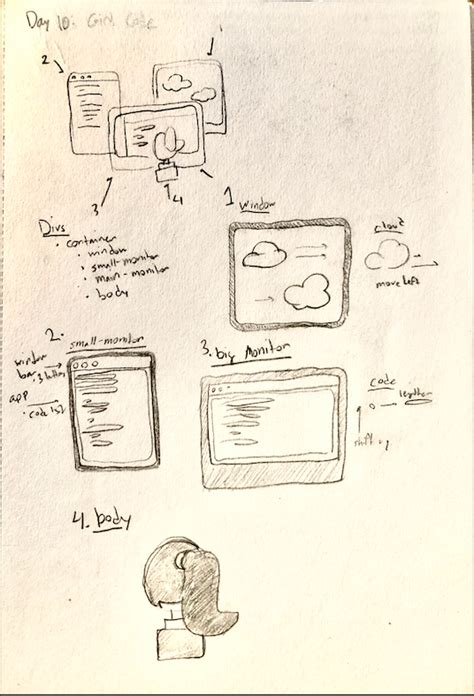 Day 10: Girl Code
1
2
3
4
Divs
• container
• window
• small-monitor
• main-monitor
• body
1 window
cloud
move left
2. small-monitor
window
bar
• 3 buttons
app
• code list
3. big monitor
code
lengthen
shift up
4. body